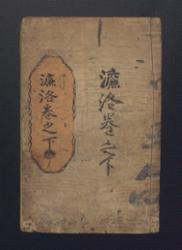 濂洛卷之下
濂洛卷之下